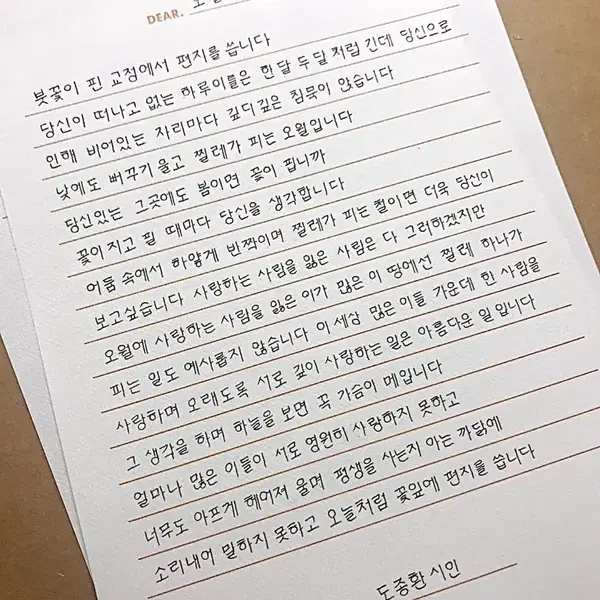 DEAR.
붓꽃이 핀 교정에서 편지를 씁니다
당신이 떠나고 없는 하루이틀은 한달 두달처럼 긴데 당신으로
인해 비어있는 자리마다 깊디깊은 침묵이 앉습니다
낮에도 뻐꾸기 울고 찔레가 피는 오월입니다
당신있는 그곳에도 봄이면 꽃이 핍니까
꽃이 지고 필 때마다 당신을 생각합니다
어둠 속에서 하얗게 반짝이며 찔레가 피는 철이면 더욱 당신이
보고싶습니다 사랑하는 사람을 잃은 사람은 다 그러하겠지만
오월에 사랑하는 사람을 잃은 이가 많은 이 땅에선 찔레 하나가
피는 일도 예사롭지 않습니다 이 세상 많은 이들 가운데 한 사람을
사랑하며 오래도록 서로 깊이 사랑하는 일은 아름다운 일입니다
그 생각을 하며 하늘을 보면 꼭 가슴이 메입니다
얼마나 많은 이들이 서로 영원히 사랑하지 못하고
너무도 아프게 헤어져 울며 평생을 사는지 아는 까닭에
소리내어 말하지 못하고 오늘처럼 꽃잎에 편지를 씁니다
도종환 시인